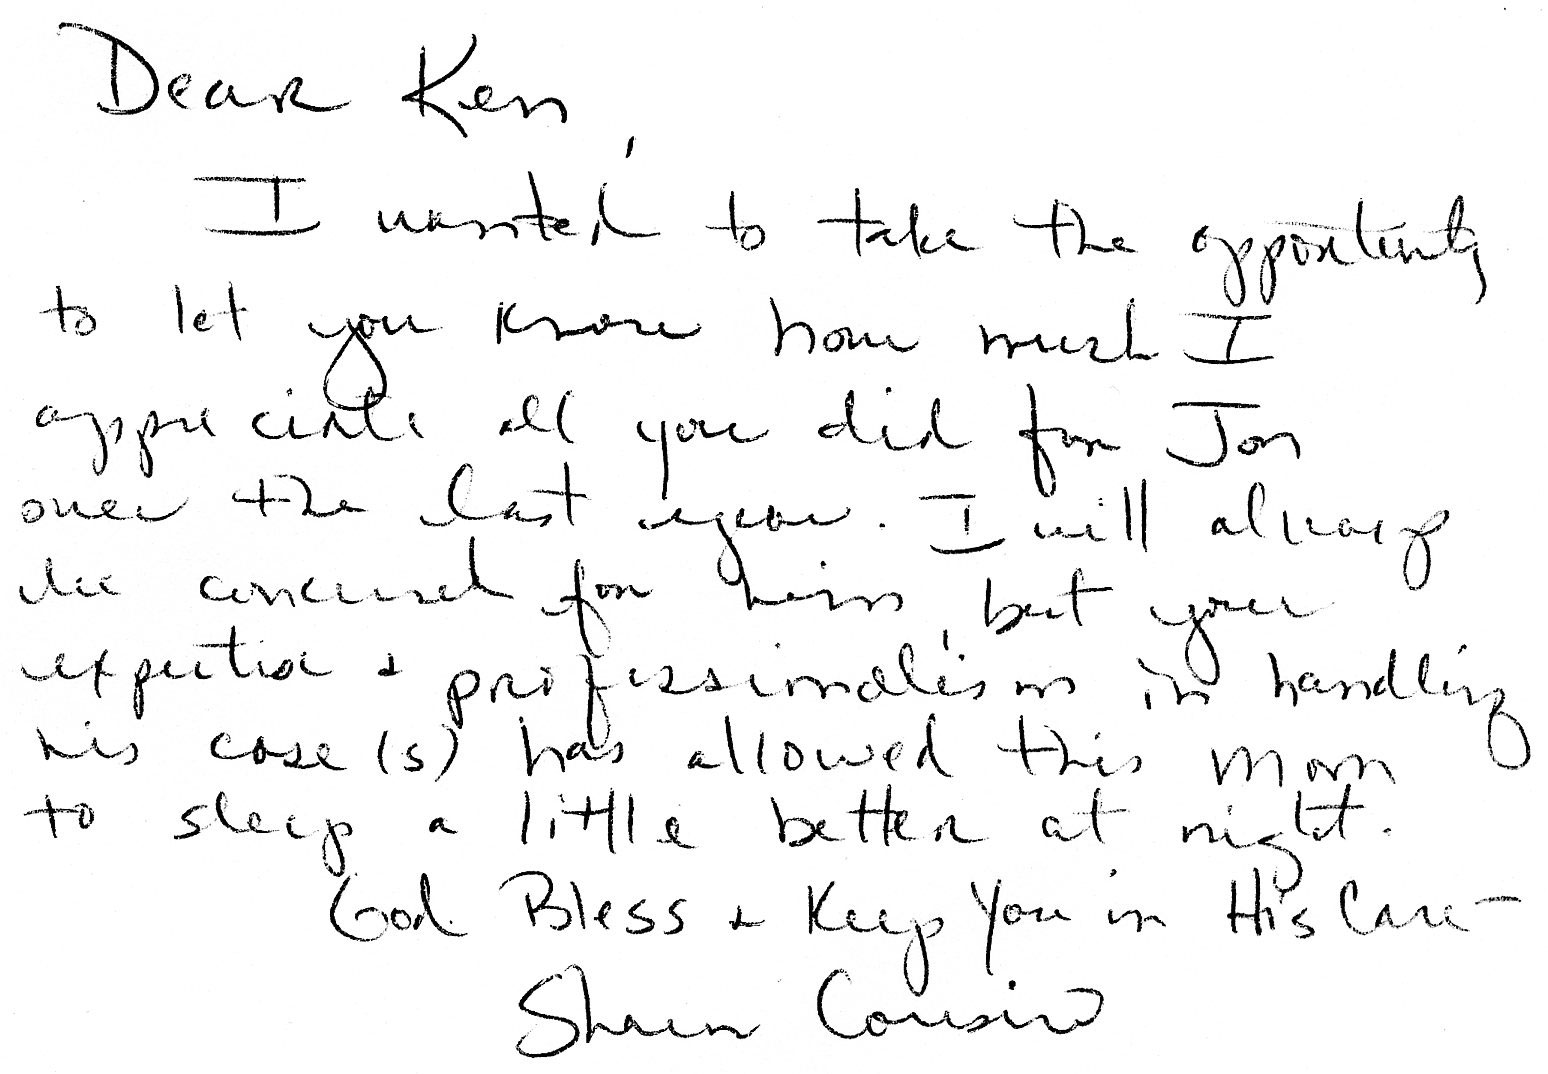 Dear Ken,
I wanted to take the opportunity
to let you know how much I
appreciate all you did for Jon
over the last year. I will always
be concerned for him, but your
expertise + professionalism in handling
his case(s) has allowed this mom
to sleep a little better at night.
God Bless + Keep You in His Care -